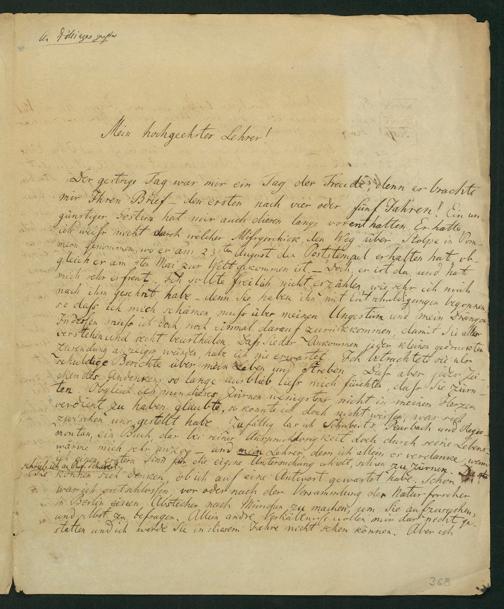 Mein hochgeehrter Lehrer!
Der gestrige Tag war mir ein Tag der Freude, denn er brachte
mir Ihren Brief – den ersten nach vier oder fünf Jahren! Ein un
günstiger Gestirn hat mir auch diesen lange vorenthalten. Er hatte
ich weiß nicht durch welcher Mißgeschick den Weg über Stolpe in Pom
mern genommen, wo er am 23ten August den Poststempel erhalten hat, ob
gleich er am 3ten Mai zur Welt gekommen ist – Doch, er ist da und hat
mich sehr erfreut. Ich sollte freilich nicht erzählen, wie sehr ich mich
nach ihm gesehnt habe, denn Sie haben ihn mit Entschuldigungen begonnen
so daß ich mich schämen muß über meinen Ungestüm und mein Drängen
Indessen muß ich doch noch einmal darauf zurückkommen, damit Sie alles
verstehen und recht beurtheilen. Daß Sie der Ankommen jeder kleinen gedruckten
Zusendung anzeigen würden habe ich nie erwartet. Ich betrachtete sie als
schuldige Berichte über mein Leben und Streben. Daß aber jedes Zei
chen des Andenkens so lange ausblieb ließ mich fürchten, daß Sie zürn
ten. Obgleich ich nun dieses Zürnen wenigstens nicht in meinem Herzen
verdient zu haben glaubte, so konnte ich doch nicht wissen, was sich
zwischen uns gestellt habe. Zufällig las ich Schuberts Peurbach und Regio
montan, ein Buch das bei seiner Anspruchslosigkeit doch durch seine Lebens
wärme mich sehr anzog – und mein Lehrer, dem ich allein es verdanke, wenn
ich einen Sinn für die eigne Untersuchung habe, schien zu zürnen.
Sie können sich denken, ob ich auf eine Antwort gewartet habe. Schon
war ich entschlossen vor oder nach der Versammlung der Naturforscher
in Berlin einen Abstecher nach München zu machen, um Sie aufzusuchen,
und selbst zu befragen. Allein andre Verhältnisse wollen mir das nicht ge
statten und ich werde Sie in diesem Jahre nicht sehen können. Aber ich
368